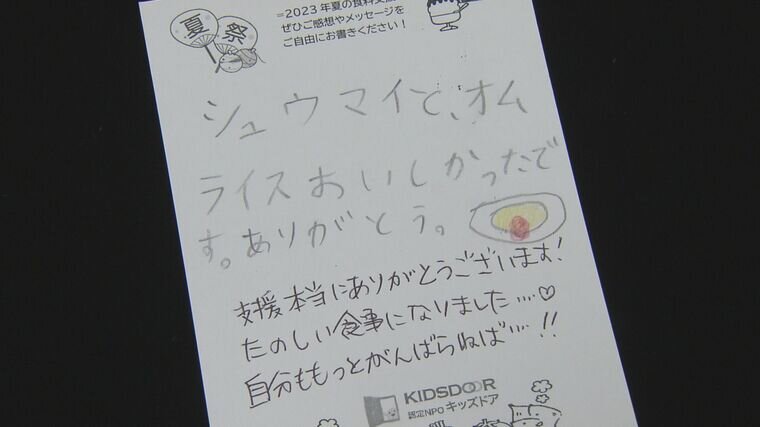 夏祭
=2023年夏の食料支
ぜひご感想やメッセージを
ご自由にお書きください!
シュウマイと、オム
ライスおいしかったで
す。ありがとう。
支援本当にありがとうございます!
たのしい食事になりました....♡
自分ももっとがんばらねば....!!
KIDSDOOR
認定NPO キッズドア